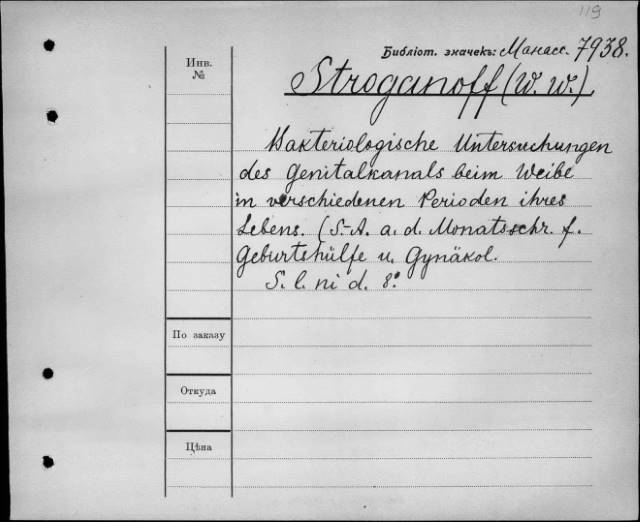 119
Библіот. значекъ: Манасс. 7938.
Инв.
№
Stroganoff (W. W.)
Bakteriologische Untersuchungen
des Genitalkanals beim Weibe
in verschiedenen Perioden ihres
Lebens. (S.-A. a. d. Monatsschr. f.
Geburtshülfe u. Gynäkol.
S. l. ni d. 8°.
По заказу
Откуда
Цѣна